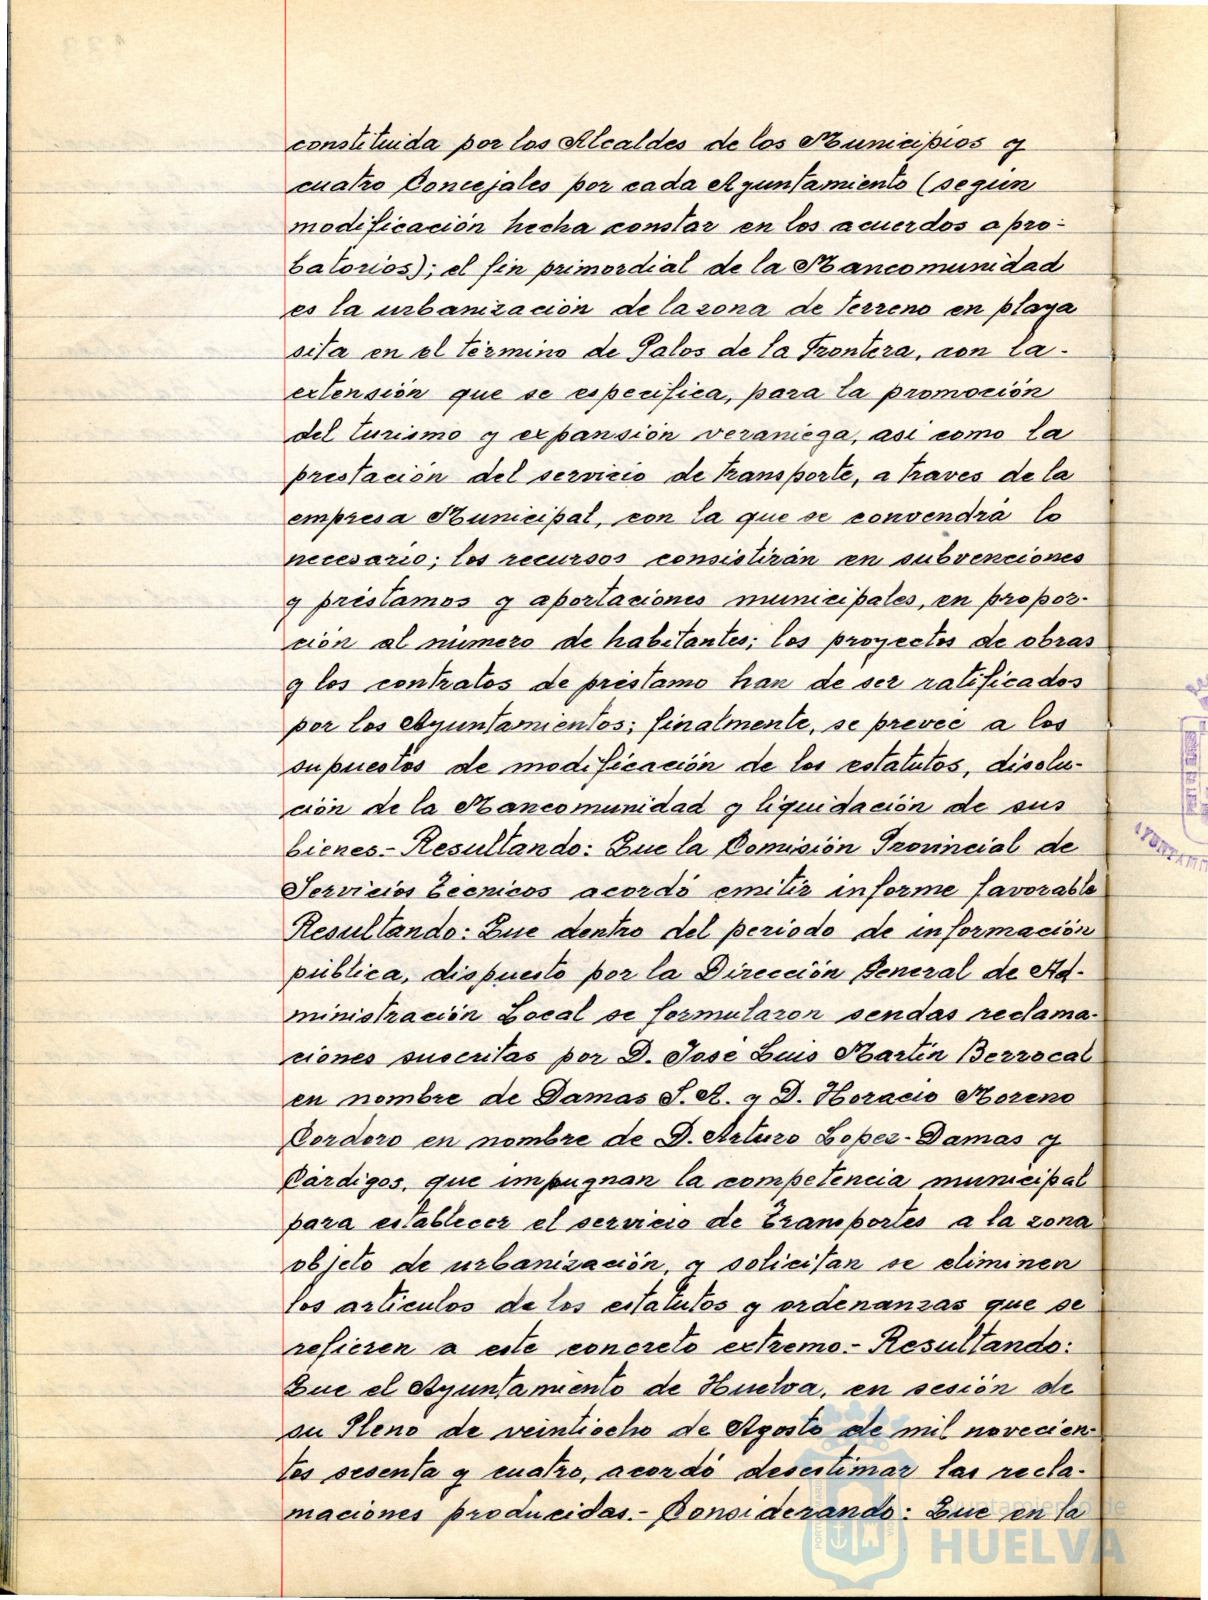 constituida por los Alcaldes de los Municipios y
cuatro Concejales por cada Ayuntamiento (según
modificación hecha constar en los acuerdos apro-
batorios); el fin primordial de la Mancomunidad
es la urbanización de la zona de terreno en playa
sita en el término de Palos de la Frontera, con la-
extensión que se especifica, para la promoción
del turismo y expansión veraniega, así como la
prestación del servicio de transporte, a traves de la
empresa Municipal, con la que se convendrá lo
necesario; los recursos consistirán en subvenciones
y préstamos y aportaciones municipales, en propor-
ción al número de habitantes; los proyectos de obras
y los contratos de préstamo han de ser ratificados
por los Ayuntamientos; finalmente, se preveé a los
supuestos de modificación de los estatutos, disolu-
ción de la Mancomunidad y liquidación de sus
bienes.- Resultando: Que la Comisión Provincial de
Servicios Técnicos acordó emitir informe favorable
Resultando: Que dentro del periodo de información
pública, dispuesto por la Dirección General de Ad-
ministración Local se formularon sendas reclama-
ciones suscritas por D. José Luis Martín Berrocal
en nombre de Damas S.A. y D. Horacio Moreno
Cordero en nombre de D. Arturo Lopez-Damas y
Cárdigos, que impugnan la competencia municipal
para establecer el servicio de transportes a la zona
objeto de urbanización, y solicitan se eliminen
los artículos de los estatutos y ordenanzas que se
refieren a este concreto extremo.- Resultando:
Que el Ayuntamiento de Huelva, en sesión de
su Pleno de veintiocho de Agosto de mil novecien-
tos sesenta y cuatro, acordó desestimar las recla-
maciones producidas.- Considerando: Que en la
Ayuntamiento de
HUELVA